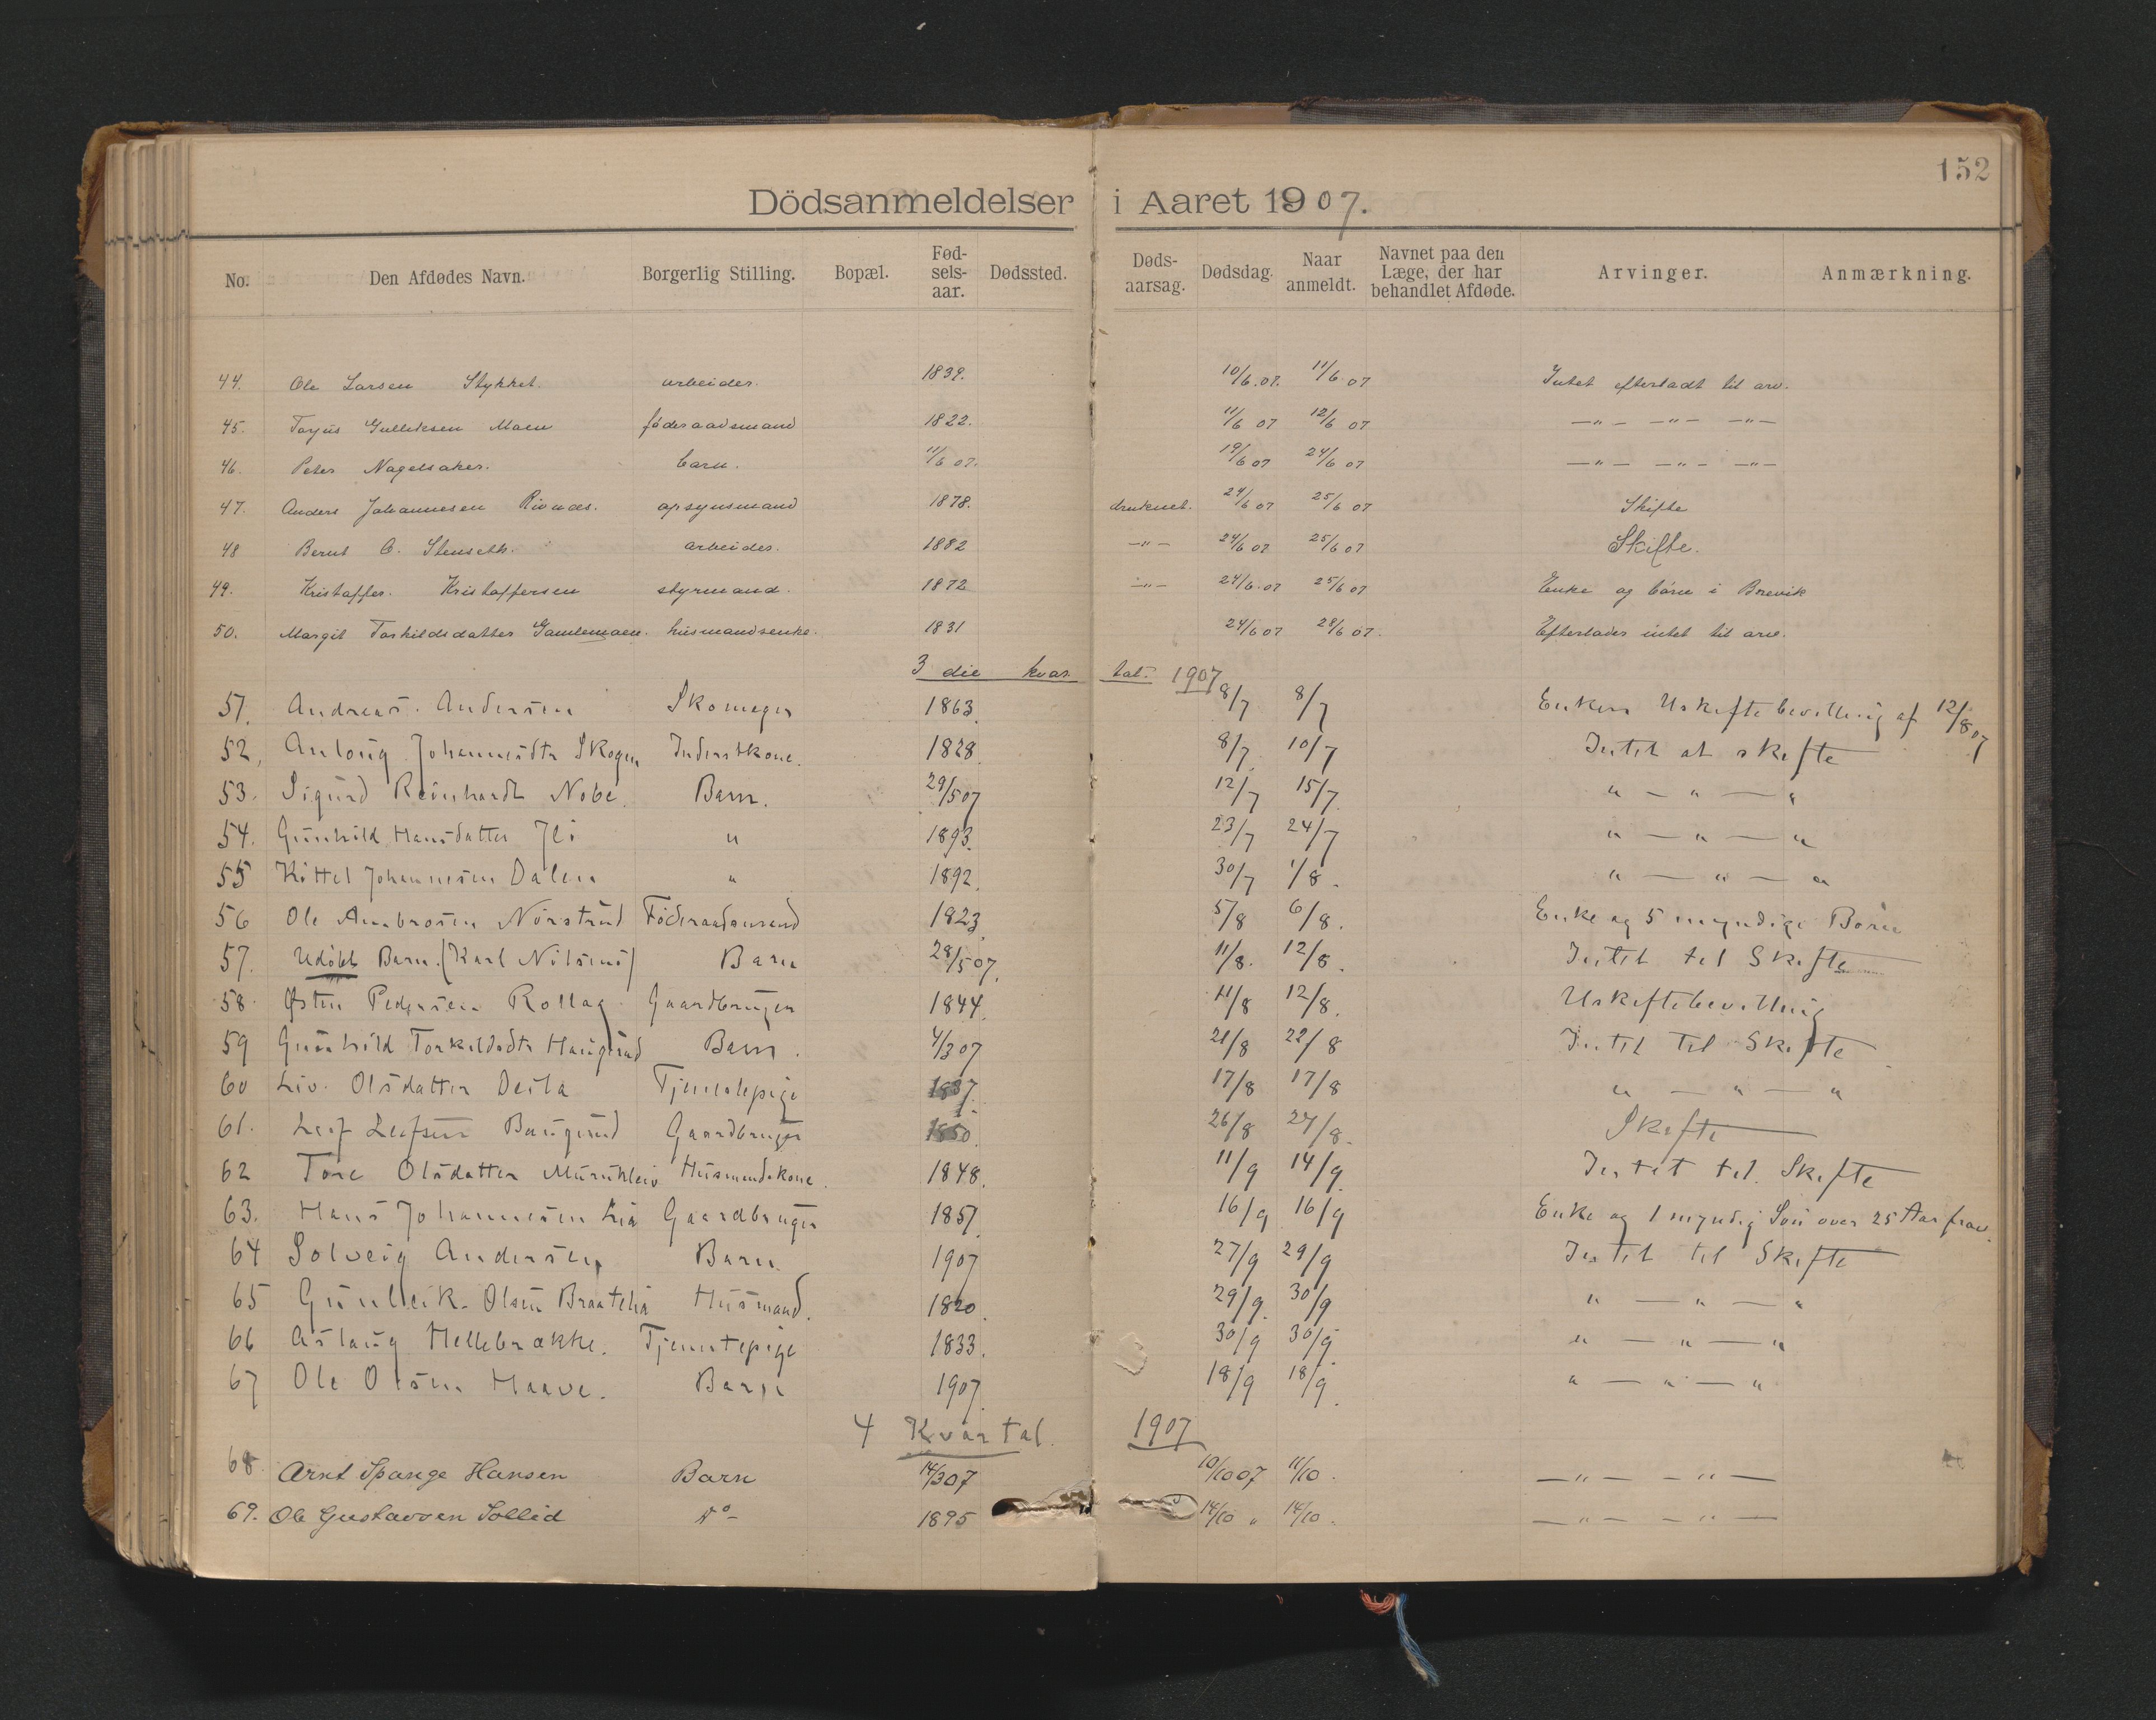 152
Dödsanmeldelser i Aaret 1907.
No. Den Afdødes Navn. Borgerlig Stilling. Bopæl. Fød-sels-aar. Dødssted. Døds-aarsag. Dødsdag. Naar anmeldt. Navnet paa den Læge, der har behandlet Afdøde. Arvinger. Anmærkning.
44. Ole Larsen Stykket. arbeider. 1839. 10/6.07. 11/6.07 Intet efterladt til arv.
45. Torjus Gulleksen Moen føderaadsmand 1822. 11/6 07 12/6 07 —"— —"— —"—
46. Peter Nagelsaker. barn. 11/6 07. 19/6 07 24/6 07 —"— —"— —"—
47. Anders Johannesen opsynsmand 1878. druknet. 24/6 07 25/6 07 Skifte
48 Bernt O. Stenseth. arbeider. 1882 —"— 24/6 07 25/6 07 Skifte.
49. Kristoffer. Kristoffersen styrmand. 1872 —"— 24/6.07 25/6 07 Enke og børn i Brevik
50. Margit Torkildsdatter Gamlemoen. husmandsenke. 1831 24/6 07 28/6 07. Efterlader intet til arv.
3 die kvar tal. 1907
51. Andreas. Andersen Skomager 1863. 8/7 8/7 Enken Uskiftebevilling af 12/8 07
52, Anlöug Johannesdtr Skogen Inderstkone. 1828. 8/7. 10/7 Intet at skifte
53. Sigurd Reinhardt Nobe. Barn. 29/5 07 12/7 15/7. " — " — "
54. Gunhild Hansdatter Jli " 1893. 23/7 24/7 " — " — "
55 Kittel Johannesen Dalen " 1892. 30/7 1/8. " — " — "
56 Ole Ambrosen Nörstrud Föderaadsmand 1823. 5/8 6/8. Enke og 5 myndige Børn
57. Udöbt Barn. (Karl Nilsens) Barn 28/5 07. 11/8. 12/8. Intet til Skifte
58. Østen Pedersen Rollag Gaardbruger 1844. 11/8 12/8. Uskiftebevilling
59 Gunhild Torkildsdtr Haugerud Barn. 4/3 07 21/8 22/8 Intet til Skifte
60 Liv. Olsdatter Tjenestepige 1837. 17/8 17/8 " — " — "
61. Leif Leifsen Gaardbruger 1850. 26/8 27/8. Skifte
62 Tone Olsdatter Husmandskone. 1848. 11/9 14/9. Intet til Skifte
63. Hans Johannesen Lia Gaardbruger 1857. 16/9 16/9 Enke og 1 myndig Søn over 25 Aar frav.
64 Solveig Andersen Barn. 1907 27/9 29/9 Intet til Skifte
65 Gunleik. Olsen Braatelia Husmand. 1820. 29/9. 30/9 " — " — "
66 Aslaug Hellebrække. Tjenstepige 1833. 30/9 30/9. " — " — "
67 Ole Olsen Haave. Barn 1907. 18/9 18/9. " — " — "
4 Kvartal. 1907
68 Arnt Spange Hansen Barn 14/3 07 10/10 07 11/10. —"— —"—
69. Ole Gustavsen Sollid do— 1895 14/10 " 14/10. —"— —"—